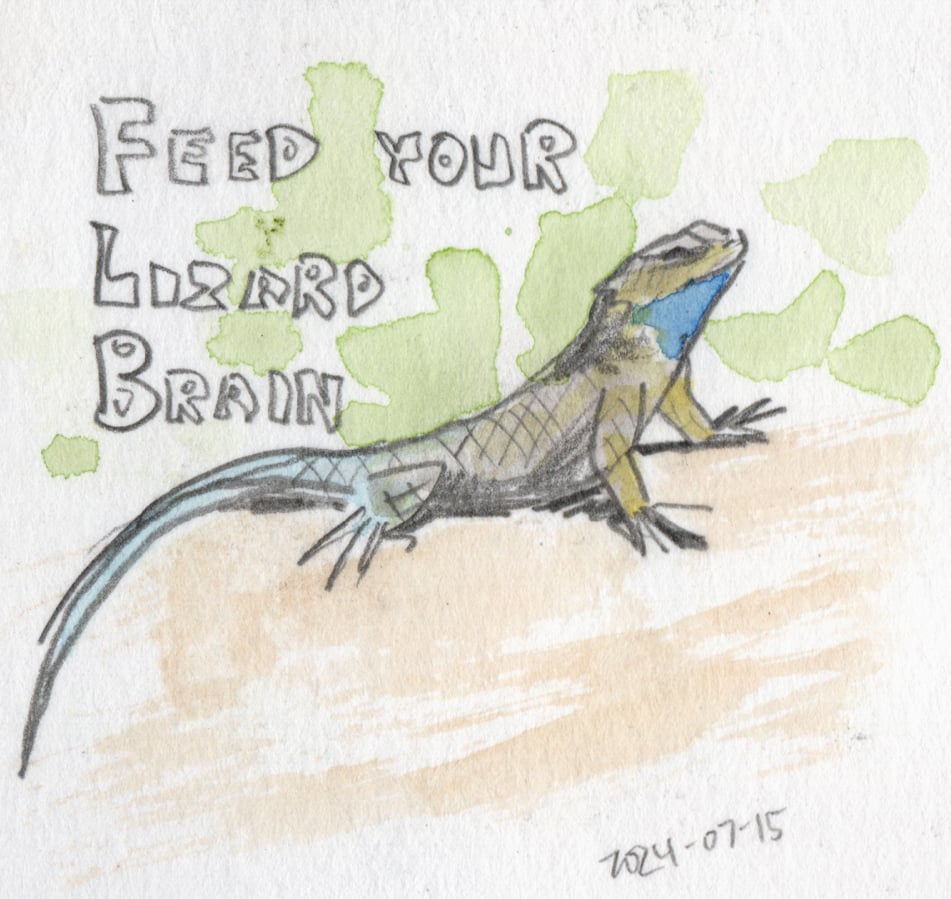 FEED YOUR
LIZARD
BRAIN
2024-07-15